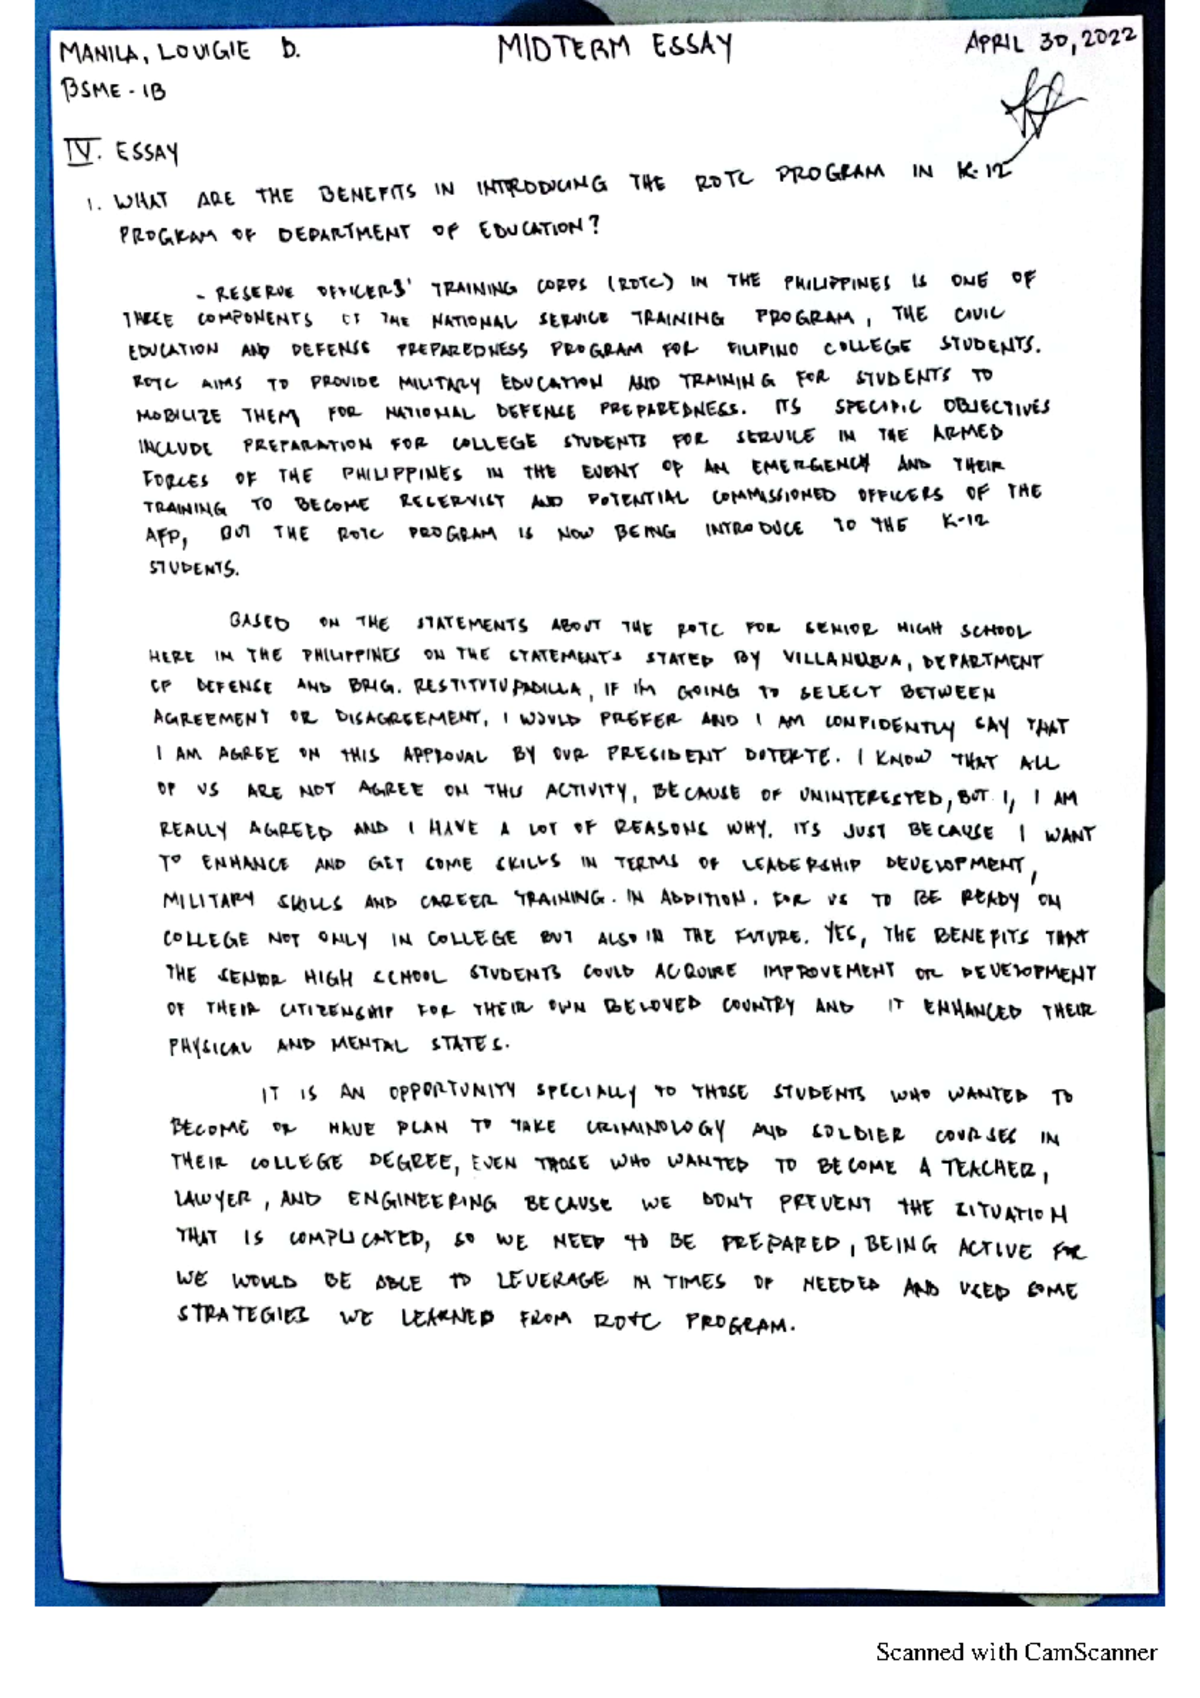 MANILA, LOUIGIE D. MIDTERM ESSAY APRIL 30, 2022
BSME - 1B
IV. ESSAY
1. WHAT ARE THE BENEFITS IN INTRODUCING THE ROTC PROGRAM IN K-12
PROGRAM OF DEPARTMENT OF EDUCATION?
- RESERVE OFFICERS' TRAINING CORPS (ROTC) IN THE PHILIPPINES IS ONE OF
THREE COMPONENTS OF THE NATIONAL SERVICE TRAINING PROGRAM, THE CIVIC
EDUCATION AND DEFENSE PREPAREDNESS PROGRAM FOR FILIPINO COLLEGE STUDENTS.
ROTC AIMS TO PROVIDE MILITARY EDUCATION AND TRAINING FOR STUDENTS TO
MOBILIZE THEM FOR NATIONAL DEFENSE PREPAREDNESS. ITS SPECIFIC OBJECTIVES
INCLUDE PREPARATION FOR COLLEGE STUDENTS FOR SERVICE IN THE ARMED
FORCES OF THE PHILIPPINES IN THE EVENT OF AN EMERGENCY AND THEIR
TRAINING TO BECOME RESERVIST AND POTENTIAL COMMISSIONED OFFICERS OF THE
AFP, BUT THE ROTC PROGRAM IS NOW BEING INTRODUCE TO THE K-12
STUDENTS.
BASED ON THE STATEMENTS ABOUT THE ROTC FOR SENIOR HIGH SCHOOL
HERE IN THE PHILIPPINES ON THE STATEMENTS STATED BY VILLANUEVA, DEPARTMENT
OF DEFENSE AND BRIG. RESTITUTU PADILLA, IF I'M GOING TO SELECT BETWEEN
AGREEMENT OR DISAGREEMENT, I WOULD PREFER AND I AM CONFIDENTLY SAY THAT
I AM AGREE ON THIS APPROVAL BY OUR PRESIDENT DUTERTE. I KNOW THAT ALL
OF US ARE NOT AGREE ON THIS ACTIVITY, BECAUSE OF UNINTERESTED, BUT I, I AM
REALLY AGREED AND I HAVE A LOT OF REASONS WHY. ITS JUST BECAUSE I WANT
TO ENHANCE AND GET SOME SKILLS IN TERMS OF LEADERSHIP DEVELOPMENT,
MILITARY SKILLS AND CAREER TRAINING. IN ADDITION, FOR US TO BE READY ON
COLLEGE NOT ONLY IN COLLEGE BUT ALSO IN THE FUTURE. YES, THE BENEFITS THAT
THE SENIOR HIGH SCHOOL STUDENTS COULD ACQUIRE IMPROVEMENT OR DEVELOPMENT
OF THEIR CITIZENSHIP FOR THEIR OWN BELOVED COUNTRY AND IT ENHANCED THEIR
PHYSICAL AND MENTAL STATES.
IT IS AN OPPORTUNITY SPECIALLY TO THOSE STUDENTS WHO WANTED TO
BECOME OR HAVE PLAN TO TAKE CRIMINOLOGY AND SOLDIER COURSES IN
THEIR COLLEGE DEGREE, EVEN THOSE WHO WANTED TO BECOME A TEACHER,
LAWYER, AND ENGINEERING BECAUSE WE DON'T PREVENT THE SITUATION
THAT IS COMPLICATED, SO WE NEED TO BE PREPARED, BEING ACTIVE FOR
WE WOULD BE ABLE TO LEVERAGE IN TIMES OF NEEDED AND USED SOME
STRATEGIES WE LEARNED FROM ROTC PROGRAM.
Scanned with CamScanner